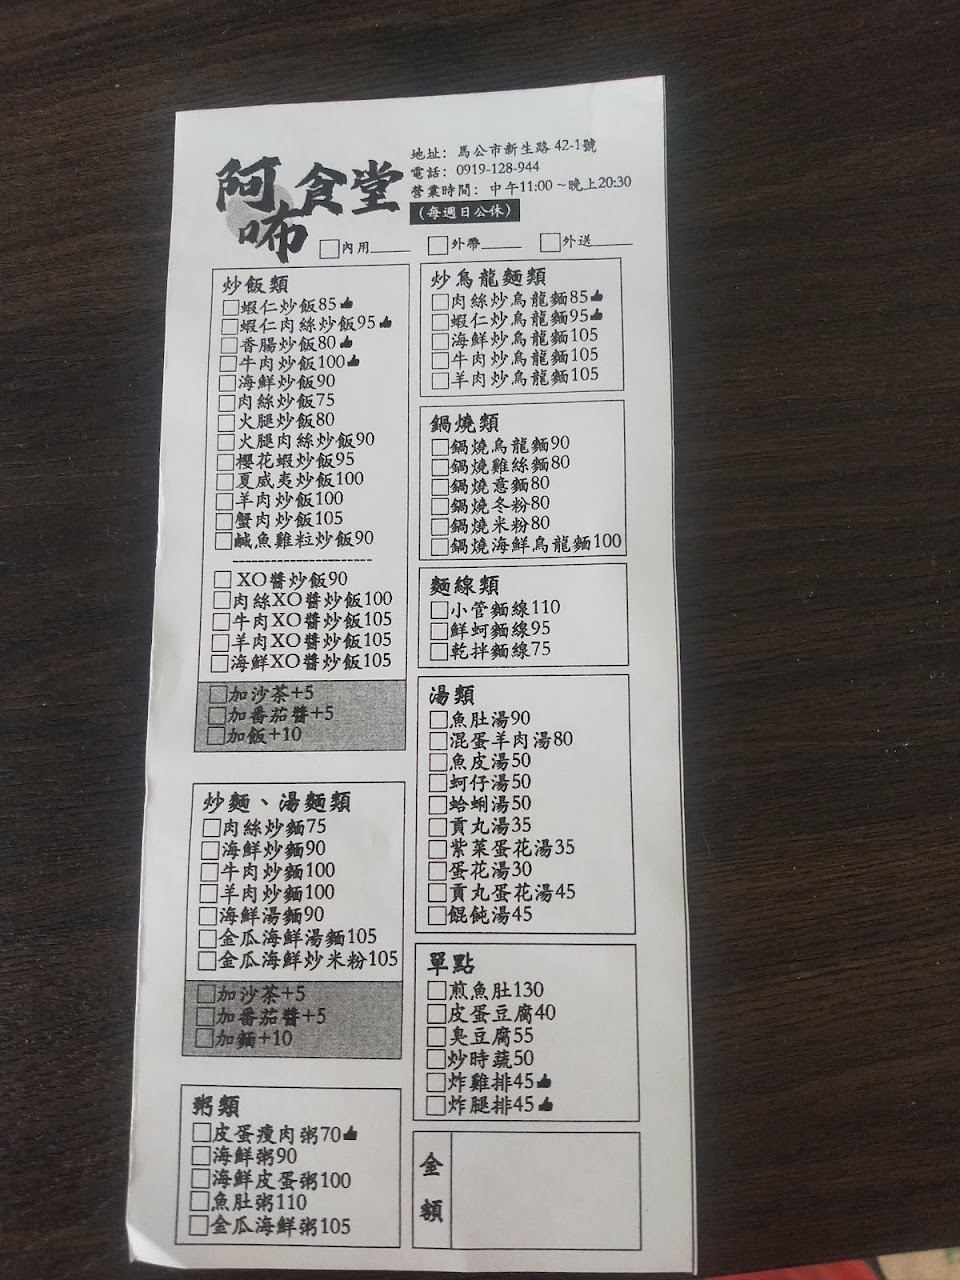 阿咘食堂
地址：馬公市新生路 42-1號
電話：0919-128-944
營業時間：中午11:00～晚上20:30
(每週日公休)
內用 外帶 外送
炒飯類
蝦仁炒飯85
蝦仁肉絲炒飯95
香腸炒飯80
牛肉炒飯100
海鮮炒飯90
肉絲炒飯75
火腿炒飯80
火腿肉絲炒飯90
櫻花蝦炒飯95
夏威夷炒飯100
羊肉炒飯100
蟹肉炒飯105
鹹魚雞粒炒飯90
XO醬炒飯90
肉絲XO醬炒飯100
牛肉XO醬炒飯105
羊肉XO醬炒飯105
海鮮XO醬炒飯105
加沙茶+5
加番茄醬+5
加飯+10
炒麵、湯麵類
肉絲炒麵75
海鮮炒麵90
牛肉炒麵100
羊肉炒麵100
海鮮湯麵90
金瓜海鮮湯麵105
金瓜海鮮炒米粉105
加沙茶+5
加番茄醬+5
加麵+10
粥類
皮蛋瘦肉粥70
海鮮粥90
海鮮皮蛋粥100
魚肚粥110
金瓜海鮮粥105
炒烏龍麵類
肉絲炒烏龍麵85
蝦仁炒烏龍麵95
海鮮炒烏龍麵105
牛肉炒烏龍麵105
羊肉炒烏龍麵105
鍋燒類
鍋燒烏龍麵90
鍋燒雞絲麵80
鍋燒意麵80
鍋燒冬粉80
鍋燒米粉80
鍋燒海鮮烏龍麵100
麵線類
小管麵線110
鮮蚵麵線95
乾拌麵線75
湯類
魚肚湯90
混蛋羊肉湯80
魚皮湯50
蚵仔湯50
蛤蜊湯50
貢丸湯35
紫菜蛋花湯35
蛋花湯30
貢丸蛋花湯45
餛飩湯45
單點
煎魚肚130
皮蛋豆腐40
臭豆腐55
炒時蔬50
炸雞排45
炸腿排45
金額